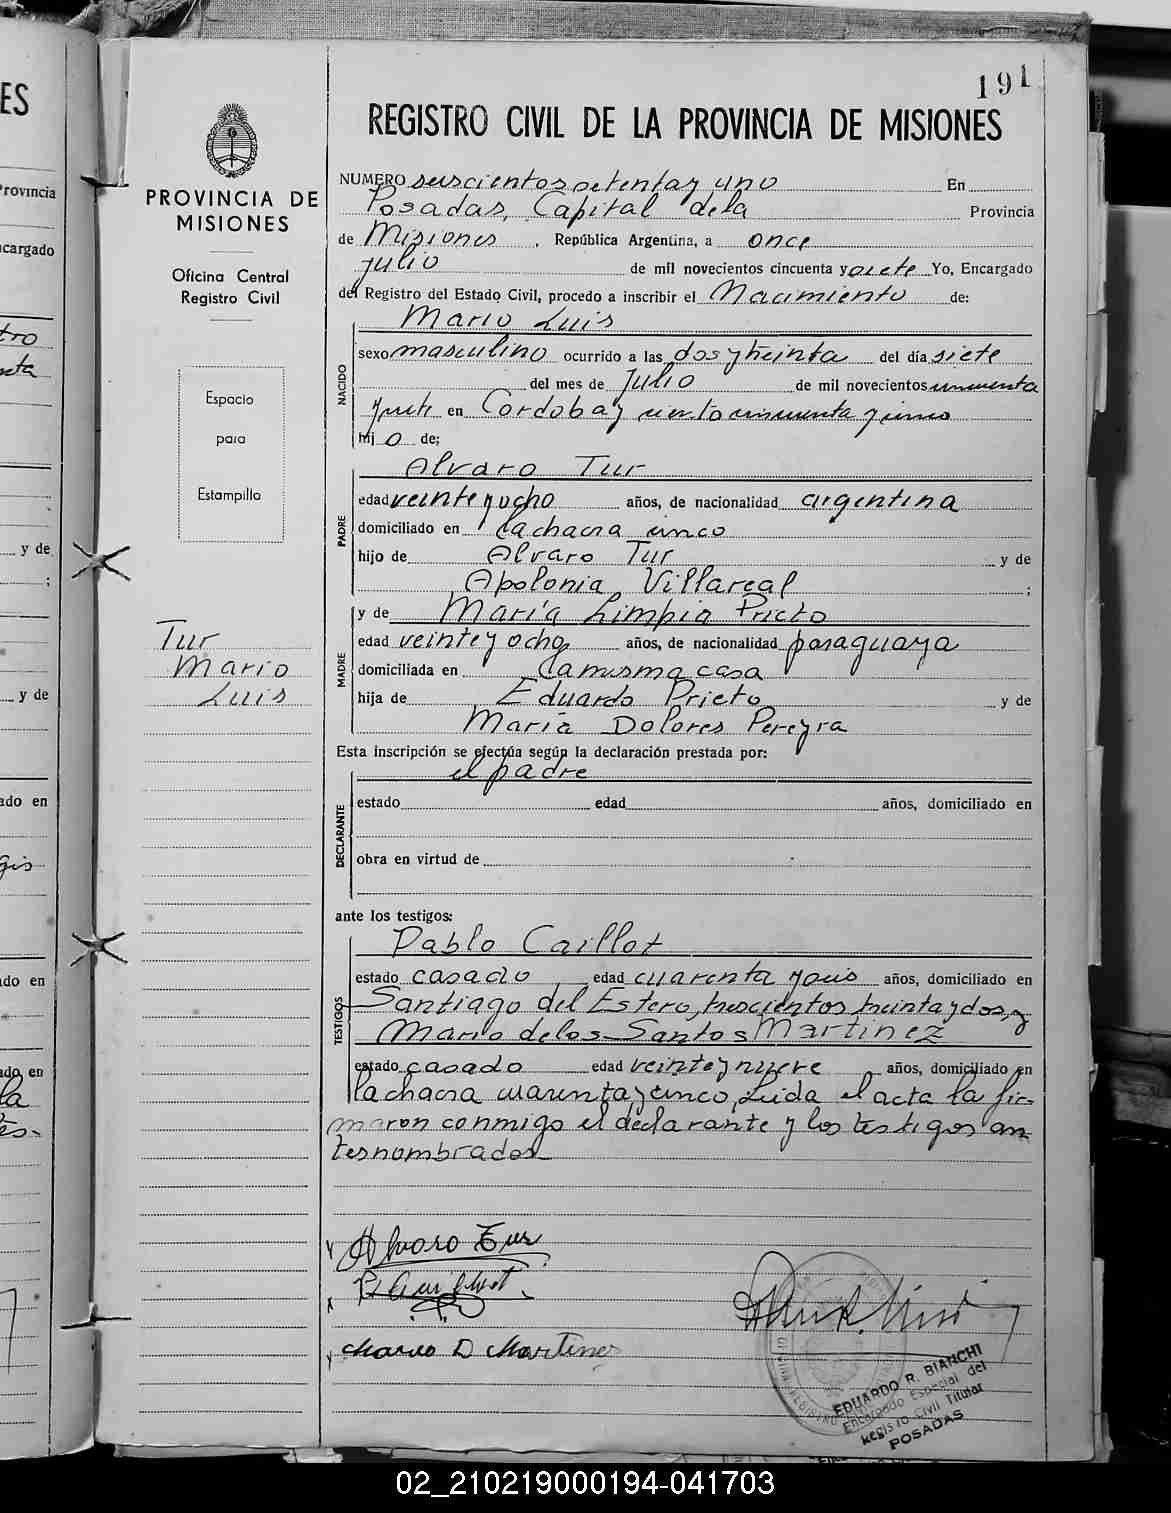 191
REGISTRO CIVIL DE LA PROVINCIA DE MISIONES
PROVINCIA DE
MISIONES
Oficina Central
Registro Civil
Espacio
para
Estampilla
Tur
Mario
Luis
NUMERO seiscientos setenta y uno En
Posadas, Capital de la Provincia
de Misiones, República Argentina, a once
julio de mil novecientos cincuenta y siete Yo, Encargado
del Registro del Estado Civil, procedo a inscribir el Nacimiento de:
Mario Luis
NACIDO
sexo masculino ocurrido a las dos y treinta del día siete
del mes de Julio de mil novecientos cincuenta
y siete en Cordoba y ciento cincuenta y cinco
hijo de;
Alvaro Tur
PADRE
edad veinte y ocho años, de nacionalidad argentina
domiciliado en la chacra cinco
hijo de Alvaro Tur y de
Apolonia Villareal ;
y de María Limpia Prieto
MADRE
edad veinte y ocho años, de nacionalidad paraguaya
domiciliada en la misma casa
hija de Eduardo Prieto y de
María Dolores Pereyra
Esta inscripción se efectúa según la declaración prestada por:
el padre
DECLARANTE
estado edad años, domiciliado en
obra en virtud de
ante los testigos:
Pablo Caillot
TESTIGOS
estado casado edad cuarenta y seis años, domiciliado en
Santiago del Estero, trescientos treinta y dos, y
Mario de los Santos Martinez
estado casado edad veinte y nueve años, domiciliado en
la chacra cuarenta y cinco, Leida el acta la fir-
maron conmigo el declarante y los testigos an-
tes nombrados
Alvaro Tur
Mario D Martinez
EDUARDO R. BIANCHI
Encargado Especial del
Registro Civil Titular
POSADAS
ES
Provincia
cargado
y de
;
y de
ado en
ado en
ado en
la
02_210219000194-041703